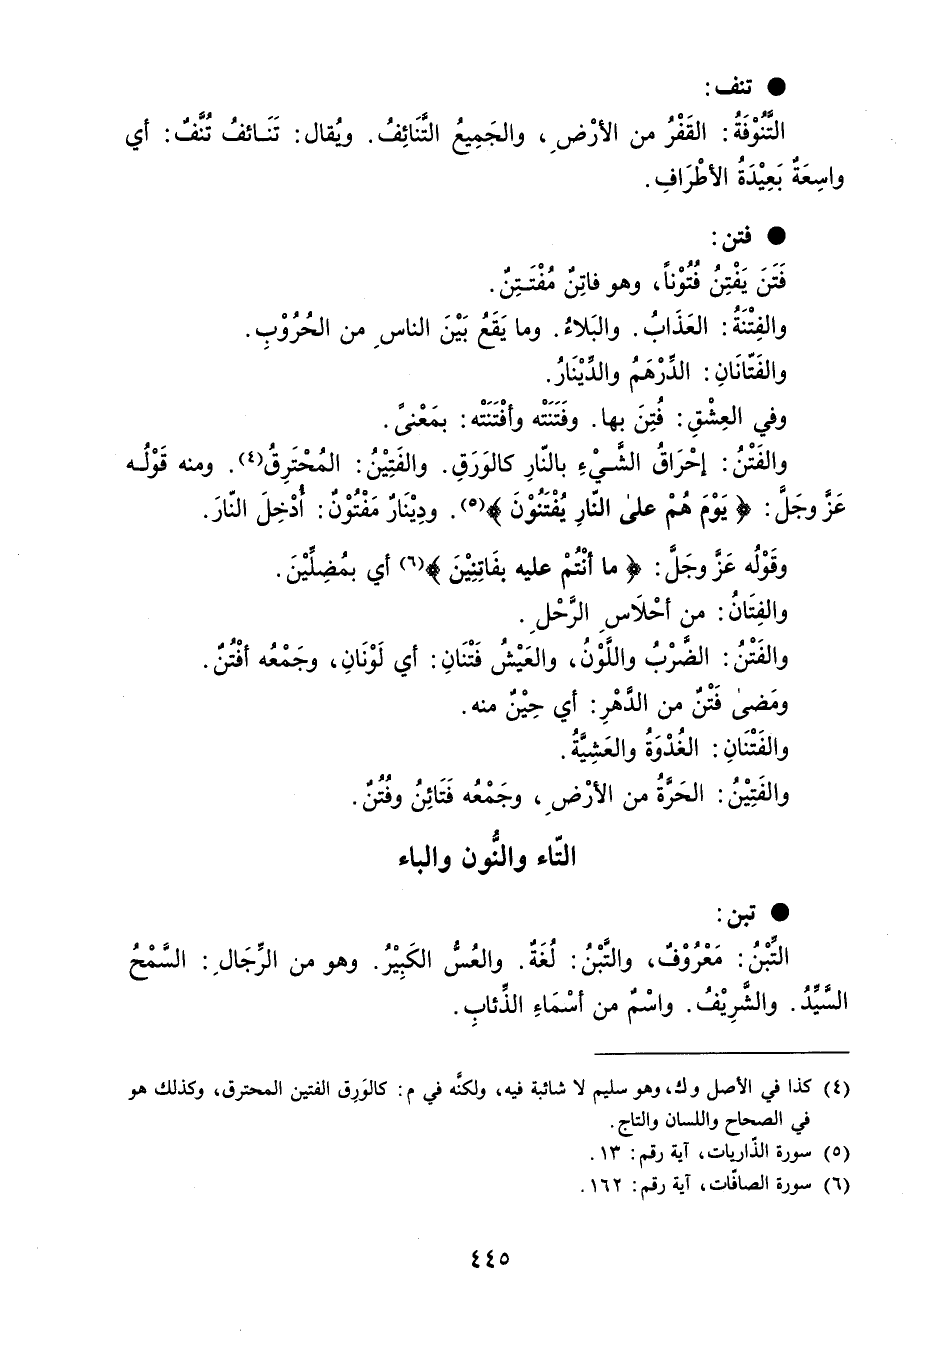 ● تنف:
التَّنُوْفَةُ: القَفْرُ من الأرْضِ، والجَمِيعُ التَّنَائِفُ. ويُقال: تَنَائفُ تُنَّفٌ: أي
واسِعَةٌ بَعِيْدَةُ الأطْرَافِ.
● فتن:
فَتَنَ يَفْتِنُ فُتُوْناً، وهو فاتِنٌ مُفْتَتِنٌ.
والفِتْنَةُ: العَذَابُ. والبَلاءُ. وما يَقَعُ بَيْنَ الناسِ من الحُرُوْبِ.
والفَتّانَانِ: الدِّرْهَمُ والدِّيْنَارُ.
وفي العِشْقِ: فُتِنَ بها. وفَتَنَتْه وأفْتَنَتْه: بمَعْنىً.
والفَتْنُ: إحْرَاقُ الشَّيْءِ بالنّارِ كالوَرَقِ. والفَتِيْنُ: المُحْتَرِقُ(٤). ومنه قَوْلُه
عَزَّ وجَلَّ: ﴿ يَوْمَ هُمْ على النّارِ يُفْتَنُوْنَ ﴾(٥). ودِيْنَارٌ مَفْتُوْنٌ: أُدْخِلَ النّارَ.
وقَوْلُه عَزَّ وجَلَّ: ﴿ ما أنْتُمْ عليه بفَاتِنِيْنَ ﴾(٦) أي بمُضِلِّيْنَ.
والفِتَانُ: من أحْلَاسِ الرَّحْلِ.
والفَتْنُ: الضَّرْبُ واللَّوْنُ، والعَيْشُ فَتْنَانِ: أي لَوْنَانِ، وجَمْعُه أفْتُنٌ.
ومَضىٰ فَتْنٌ من الدَّهْرِ: أي حِيْنٌ منه.
والفَتْنَانِ: الغُدْوَةُ والعَشِيَّةُ.
والفَتِيْنُ: الحَرَّةُ من الأرْضِ، وجَمْعُه فَتَائِنُ وفُتُنٌ.
التّاء والنُّون والباء
● تبن:
التِّبْنُ: مَعْرُوْفٌ، والتَّبْنُ: لُغَةٌ. والعُسُّ الكَبِيْرُ. وهو من الرِّجَالِ: السَّمْحُ
السَّيِّدُ. والشَّرِيْفُ. واسْمٌ من أسْمَاءِ الذِّئابِ.
(٤) كذا في الأصل وك، وهو سليم لا شائبة فيه، ولكنَّه في م: كالوَرِق الفتين المحترق، وكذلك هو
في الصحاح واللسان والتاج.
(٥) سورة الذّاريات، آية رقم: ١٣.
(٦) سورة الصافّات، آية رقم: ١٦٢.
٤٤٥